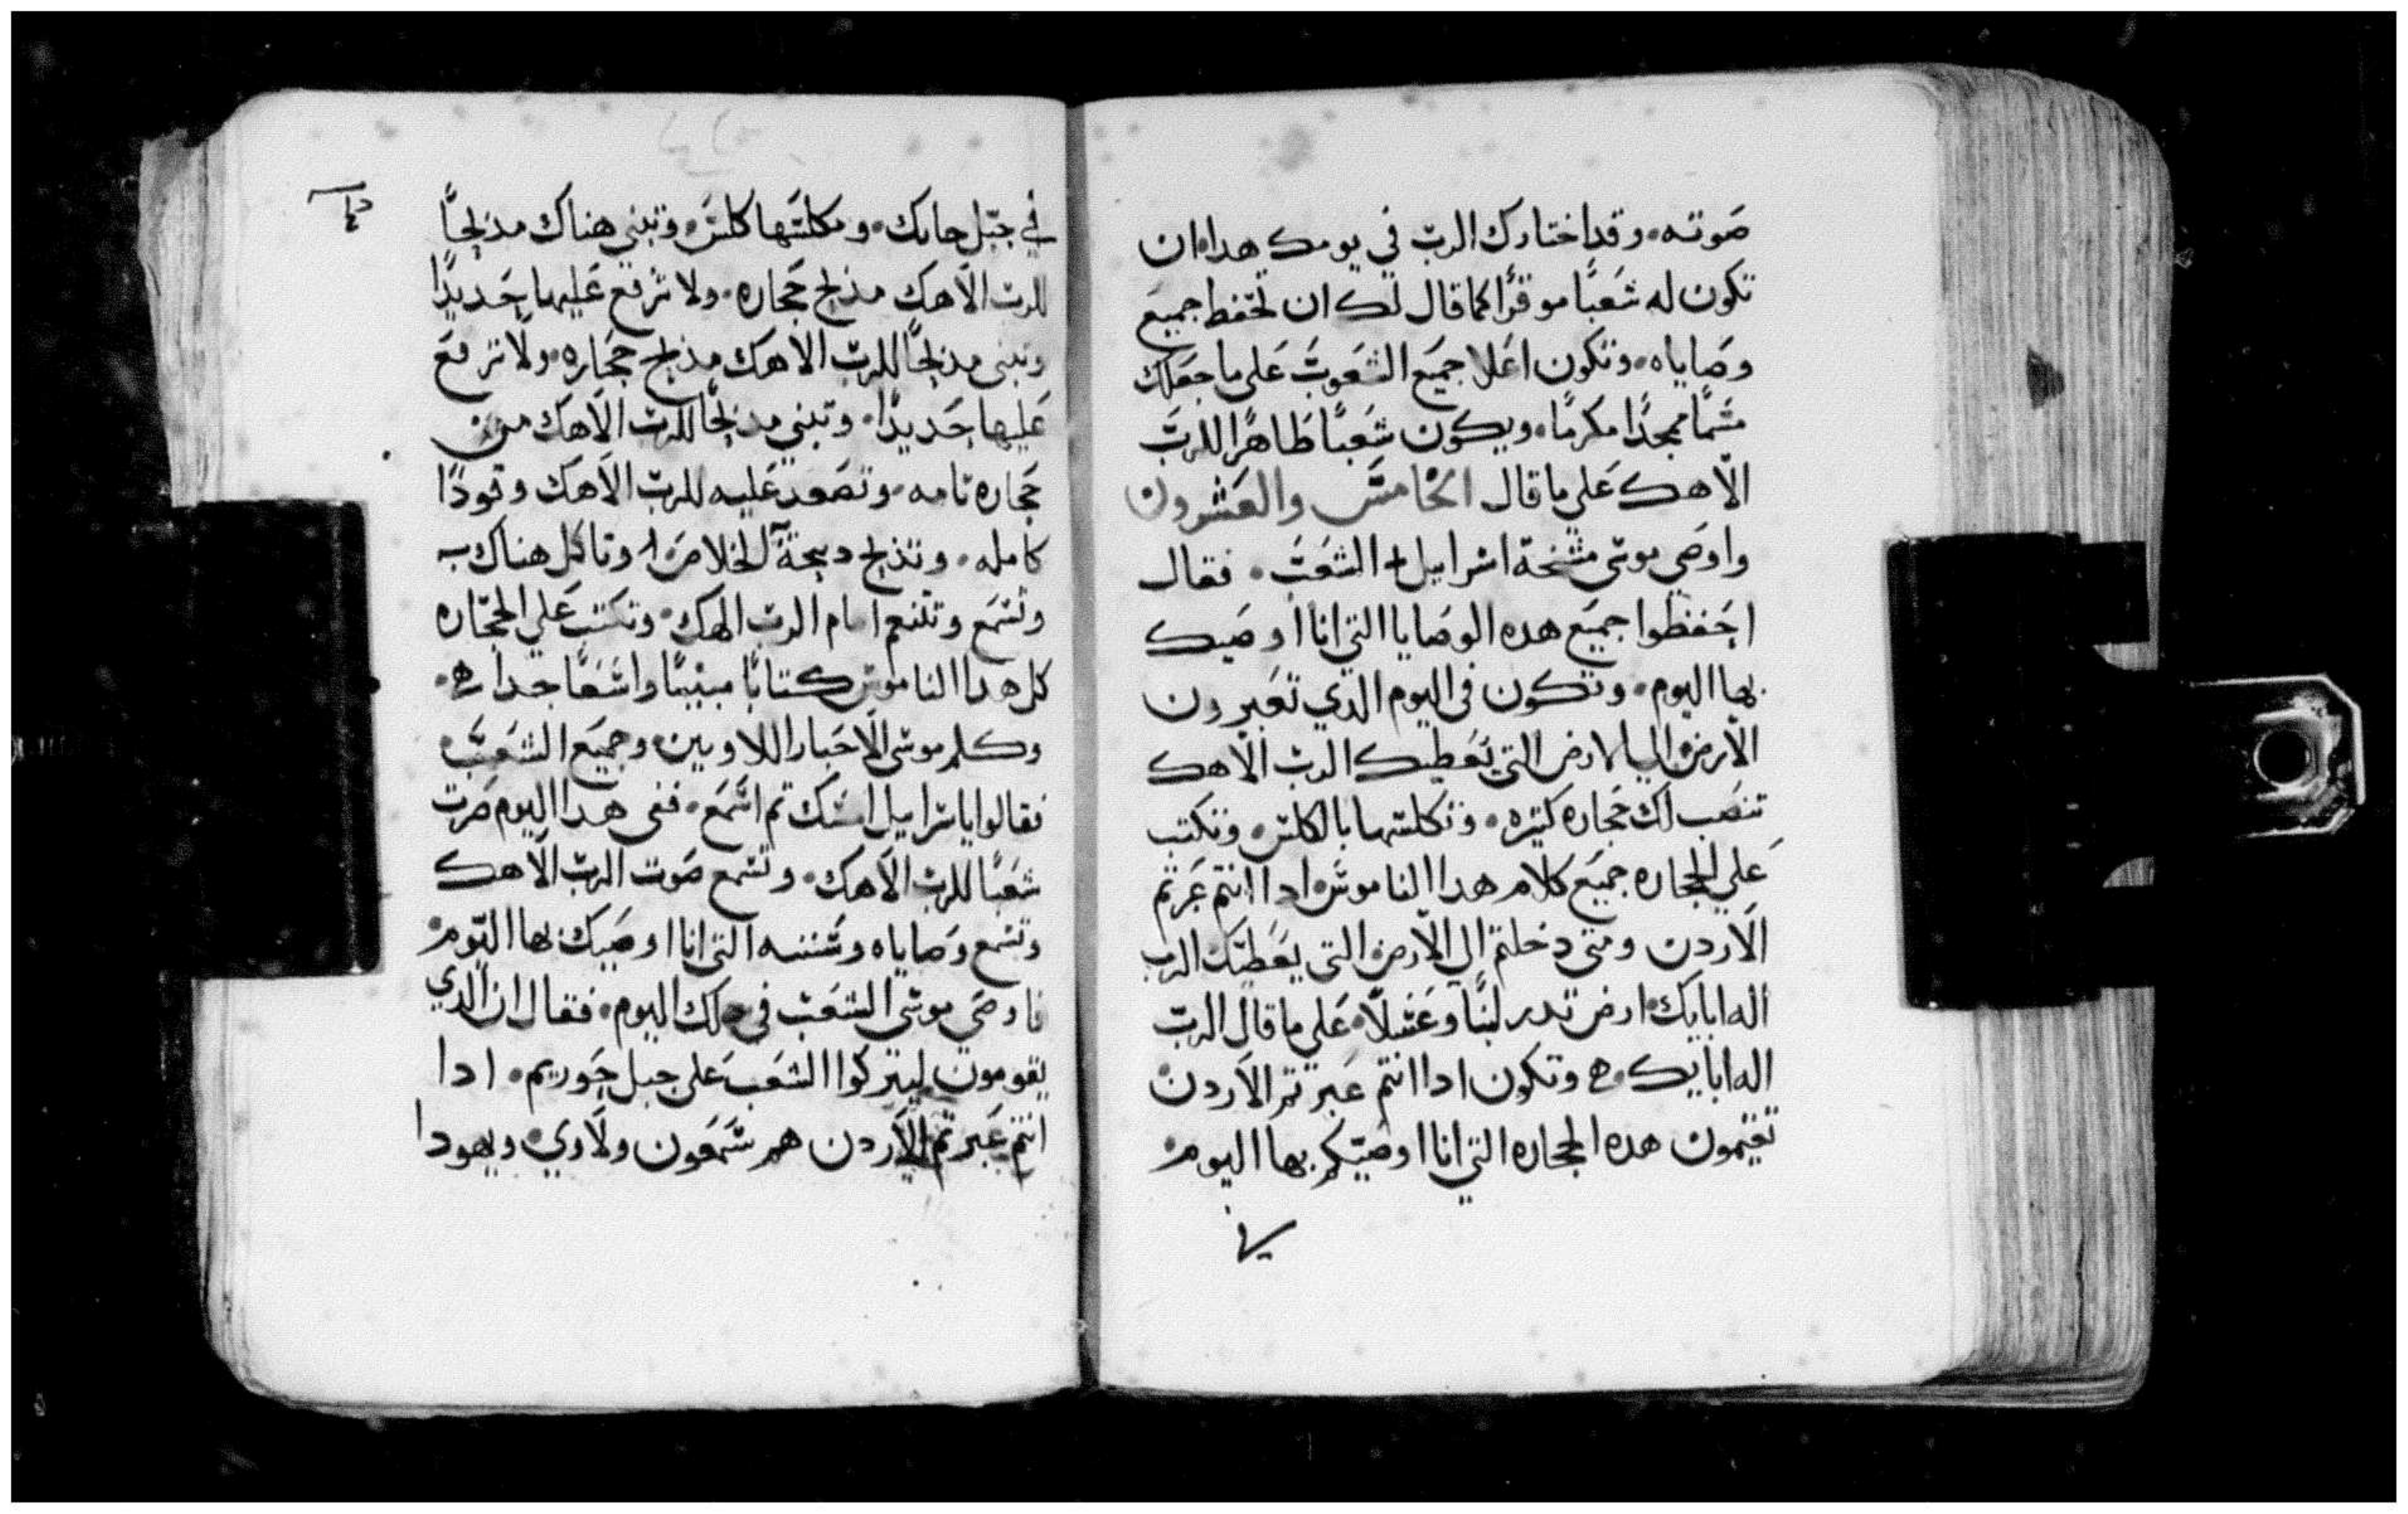 صوته. وقد اختارك الرب في يومك هدا. ان
تكون له شعبًا موقرًا كما قال لك ان تحفظ جميع
وصاياه. وتكون اعلا جميع الشعوب على ما جعلك
مسمًا ممجدًا مكرمًا. ويكون شعبًا طاهرًا للرب
الاهك على ما قال الخامس والعشرون
واوصي موسى مشخة اسراييل + الشعب. فقال
احفظوا جميع هده الوصايا التي انا اوصيك
بها اليوم. وتكون في اليوم الدي تعبرون
الاردن الي الارض التي تعطيك الرب الاهك
تنصب لك حجاره كتيره. وتكلسها بالكلس. وتكتب
علي الحجاره جميع كلام هدا الناموس. ادا انتم عبرتم
الاردن ومتى دخلتم الي الارض التي يعطيك الرب
اله ابايك. ارض تدر لبنًا وعسلاً. على ما قال الرب
اله ابايك ه وتكون ادا انتم عبرتم الاردن
تقيمون هده الحجاره التي انا اوصيكم بها اليوم.
في
في جبل جابك. ومكلسها كلس. وتبني هناك مذبحًا
للرب الاهك مذبح حجاره. ولا ترفع عليها حديدًا
وتبنى مذبحًا للرب الاهك مذبح حجاره. ولا ترفع
عليها حديدًا. وتبني مذبحًا للرب الاهك من
حجاره تامه. وتصعد عليه للرب الاهك وقودًا
كامله. وتذبح دبيحة الخلاص. وتاكل هناك
وتسمع وتتنعم امام الرب الهك. وتكتب علي الحجاره
كل هدا الناموس كتابًا مبينًا واسعًا جدا ه.
وكلم موسى الاحبار اللاويين. وجميع الشعب.
فقالوا ياسراييل امسك تم اسمع. ففى هدا اليوم صرت
شعبًا للرب الاهك. وتسمع صوت الرب الاهك
وتسمع وصاياه وسننه التى انا اوصيك بها اليوم.
فاوصي موسى الشعب في دلك اليوم. فقال ان الدي
يقومون ليتركوا الشعب على جبل جوريم. ادا
انتم عبرتم الاردن هم شمعون ولاوي. ويهودا